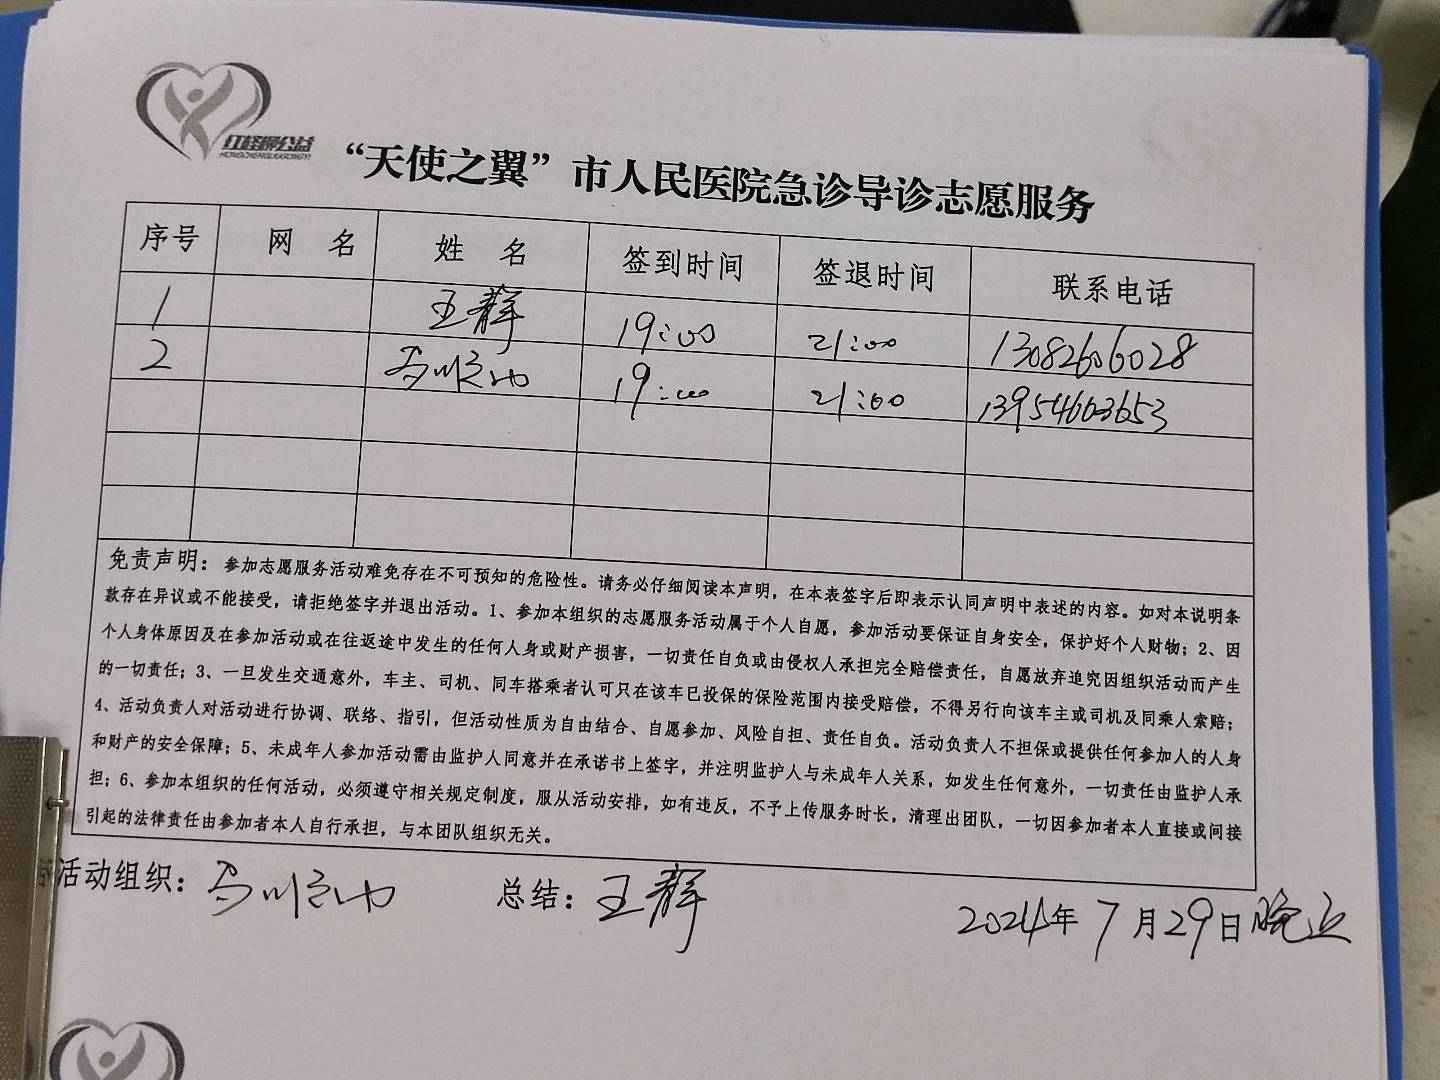 红柽柳公益
HONGCHENGLIUGONGYI
“天使之翼”市人民医院急诊导诊志愿服务
序号 网 名 姓 名 签到时间 签退时间 联系电话
1 王静 19:00 21:00 13082606028
2 19:00 21:00 13954663653
免责声明：参加志愿服务活动难免存在不可预知的危险性。请务必仔细阅读本声明，在本表签字后即表示认同声明中表述的内容。如对本说明条
款存在异议或不能接受，请拒绝签字并退出活动。1、参加本组织的志愿服务活动属于个人自愿，参加活动要保证自身安全，保护好个人财物；2、因
个人身体原因及在参加活动或在往返途中发生的任何人身或财产损害，一切责任自负或由侵权人承担完全赔偿责任，自愿放弃追究因组织活动而产生
的一切责任；3、一旦发生交通意外，车主、司机、同车搭乘者认可只在该车已投保的保险范围内接受赔偿，不得另行向该车主或司机及同乘人索赔；
4、活动负责人对活动进行协调、联络、指引，但活动性质为自由结合、自愿参加、风险自担、责任自负。活动负责人不担保或提供任何参加人的人身
和财产的安全保障；5、未成年人参加活动需由监护人同意并在承诺书上签字，并注明监护人与未成年人关系，如发生任何意外，一切责任由监护人承
担；6、参加本组织的任何活动，必须遵守相关规定制度，服从活动安排，如有违反，不予上传服务时长，清理出团队，一切因参加者本人直接或间接
引起的法律责任由参加者本人自行承担，与本团队组织无关。
活动组织： 总结：王静
2024年7月29日晚上